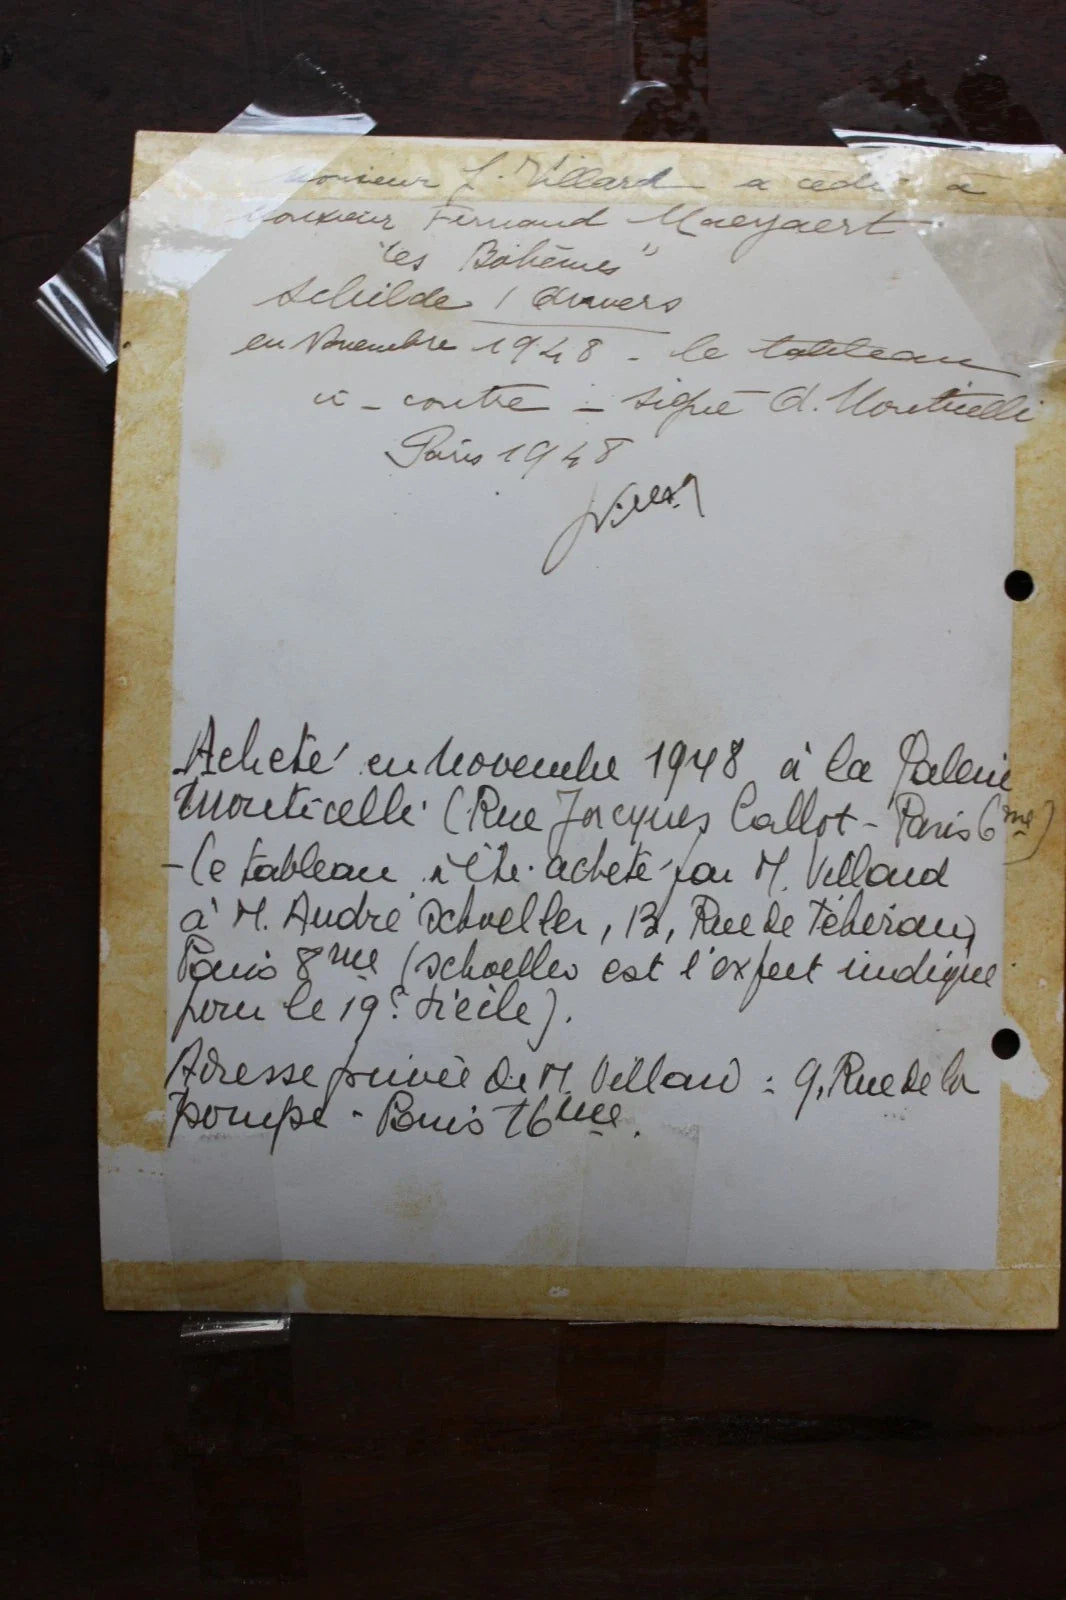 Monsieur J. Villard a cédé à
Monsieur Fernand Maeyaert
"Les Bohèmes"
Schilde / Anvers
en Novembre 1948 - le tableau
ci-contre - signé A. Monticelli
Paris 1948
JVillard
Acheté en Novembre 1948 à la Galerie
Monticelli (Rue Jacques Callot - Paris 6me)
- Le tableau a été acheté par M. Villard
à M. André Schoeller, 13, Rue de Téhéran,
Paris 8me (Schoeller est l'expert indiqué
pour le 19e siècle).
Adresse privée de M. Villard : 9, Rue de la
Pompe - Paris 16me.